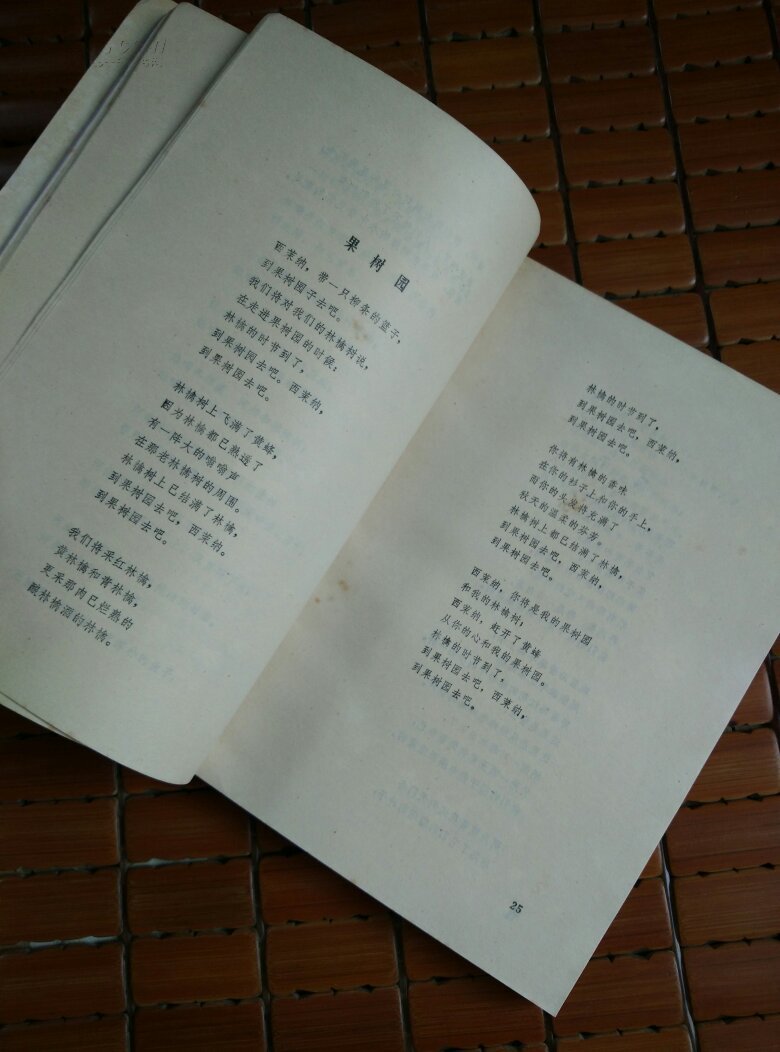 果树园
西莱纳，带一只柳条的篮子，
到果树园子去吧。
我们将对我们的林檎树说，
在走进果树园的时候：
林檎的时节到了，
到果树园去吧。西莱纳，
到果树园去吧。
林檎树上飞满了黄蜂，
因为林檎都已熟透了
有一阵大的嗡嗡声
在那老林檎树的周围。
林檎树上已结满了林檎，
到果树园去吧，西莱纳。
到果树园去吧。
我们将采红林檎，
黄林檎和青林檎，
更采那肉已烂熟的
酿林檎酒的林檎。
林檎的时节到了，
到果树园去吧，西莱纳，
到果树园去吧。
你将有林檎的香味
在你的衫子上和你的手上，
而你的头发将充满了
秋天的温柔的芬芳。
林檎树上都已结满了林檎，
到果树园去吧，西莱纳，
到果树园去吧。
西莱纳，你将是我的果树园
和我的林檎树；
西莱纳，赶开了黄蜂
从你的心和我的果树园。
林檎的时节到了，
到果树园去吧，西莱纳，
到果树园去吧。
25